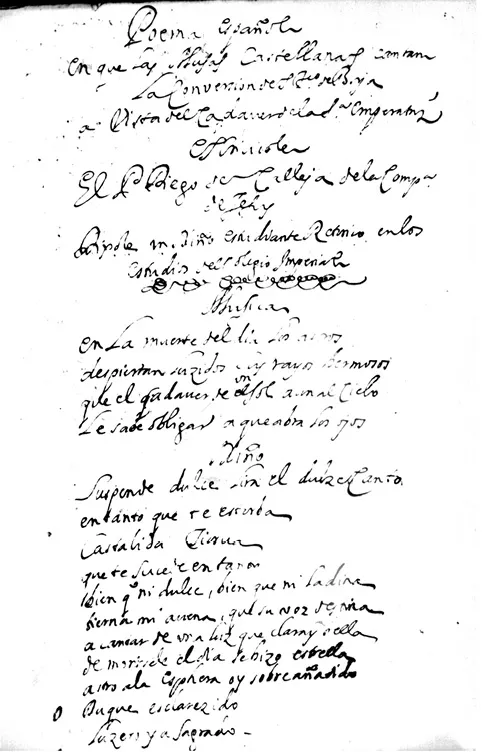 Poema español
en que las Musas Castellanas cantan
La Conversion de S. Fco. de Borja
a Vista del Cadaver de la Sra. Emperatriz
Escriviole
El P. Diego de Calleja de la Comp.
de Jesus
Dixole un Niño estudiante Retorico en los
Estudios del Colegio Imperial
Musica
en La muerte del dia los astros
despiertan luzidos sus rayos hermosos
que el cadaver de un sol aun al Cielo
Le sabe obligar a que abra los ojos
Niño
Suspende dulce lira el dulze Canto
en tanto que te escucha
Castalida
que te sucede en tanto
bien q ni dulce, bien que ni ladina
tierna mi avena, que su voz
a cantar de una luz que clara y bella
de morirsele el dia se hizo estrella
astro a la Esphera oy sobreañadido
Duque esclarezido
Luzero ya sagrado